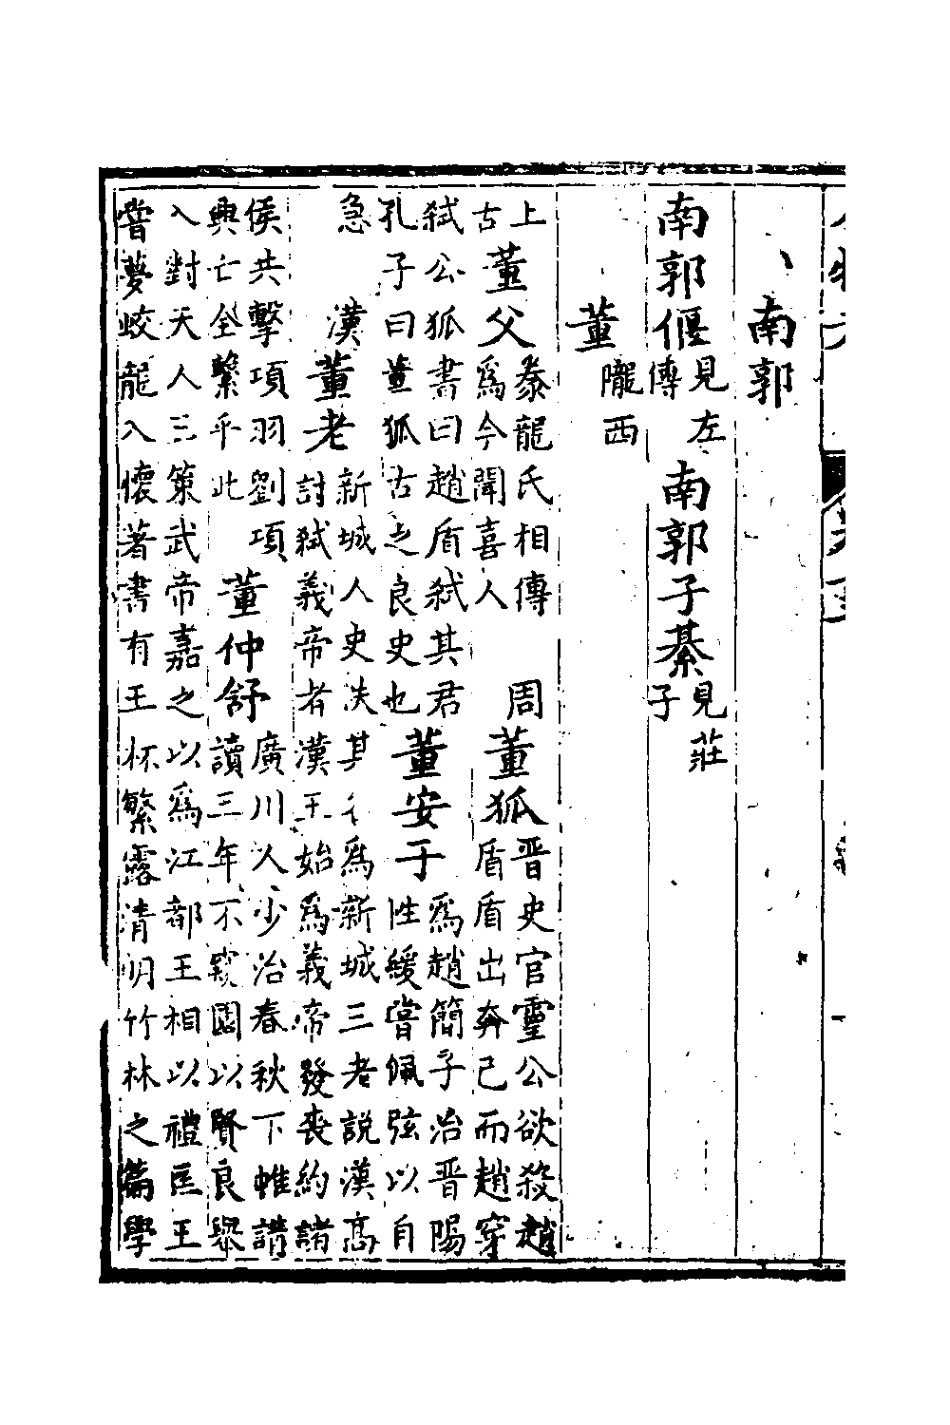 南郭
南郭偃見左傳南郭子綦見莊子
董隴西
上古董父豢龍氏相傳爲今聞喜人周董狐晋史官靈公欲殺趙盾盾出奔已而趙穿
弑公狐書曰趙盾弑其君孔子曰董狐古之良史也董安于爲趙簡子治晋陽性緩嘗佩弦以自
急漢董老新城人史失其爲新城三老說漢高討弑義帝者漢王始爲義帝發丧約諸
侯共擊項羽劉項興亡全繫乎此董仲舒廣川人少治春秋下帷講讀三年不窺園以賢良舉
入對天人三策武帝嘉之以爲江都王相以禮匡王嘗夢蛟龍入懷著書有王杯繁露清明竹林之篇學